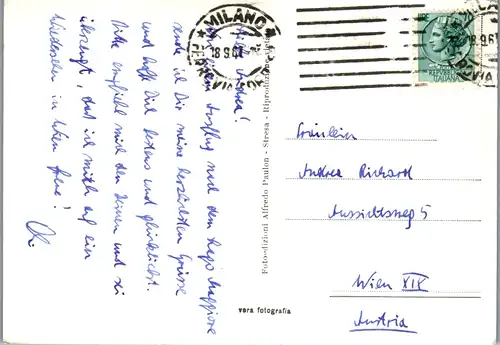 MILANO
18.9.6
FERROVIA
MILANO
18.9.6
Liebe Andrea!
Von einem Ausflug nach dem Lago Maggiore
sende ich Dir meine herzlichsten Grüsse
und hoffe Dich bestens und glücklichst.
Bitte empfiehl mich den Deinen und sei
überzeugt, dass ich mich auf ein
Wiedersehen in Wien freue!
Foto-edizioni Alfredo Paulon - Stresa - Riproduzione
vera fotografia
Fräulein
Andrea Richard
Aussichtsweg 5
Wien XIX
Austria